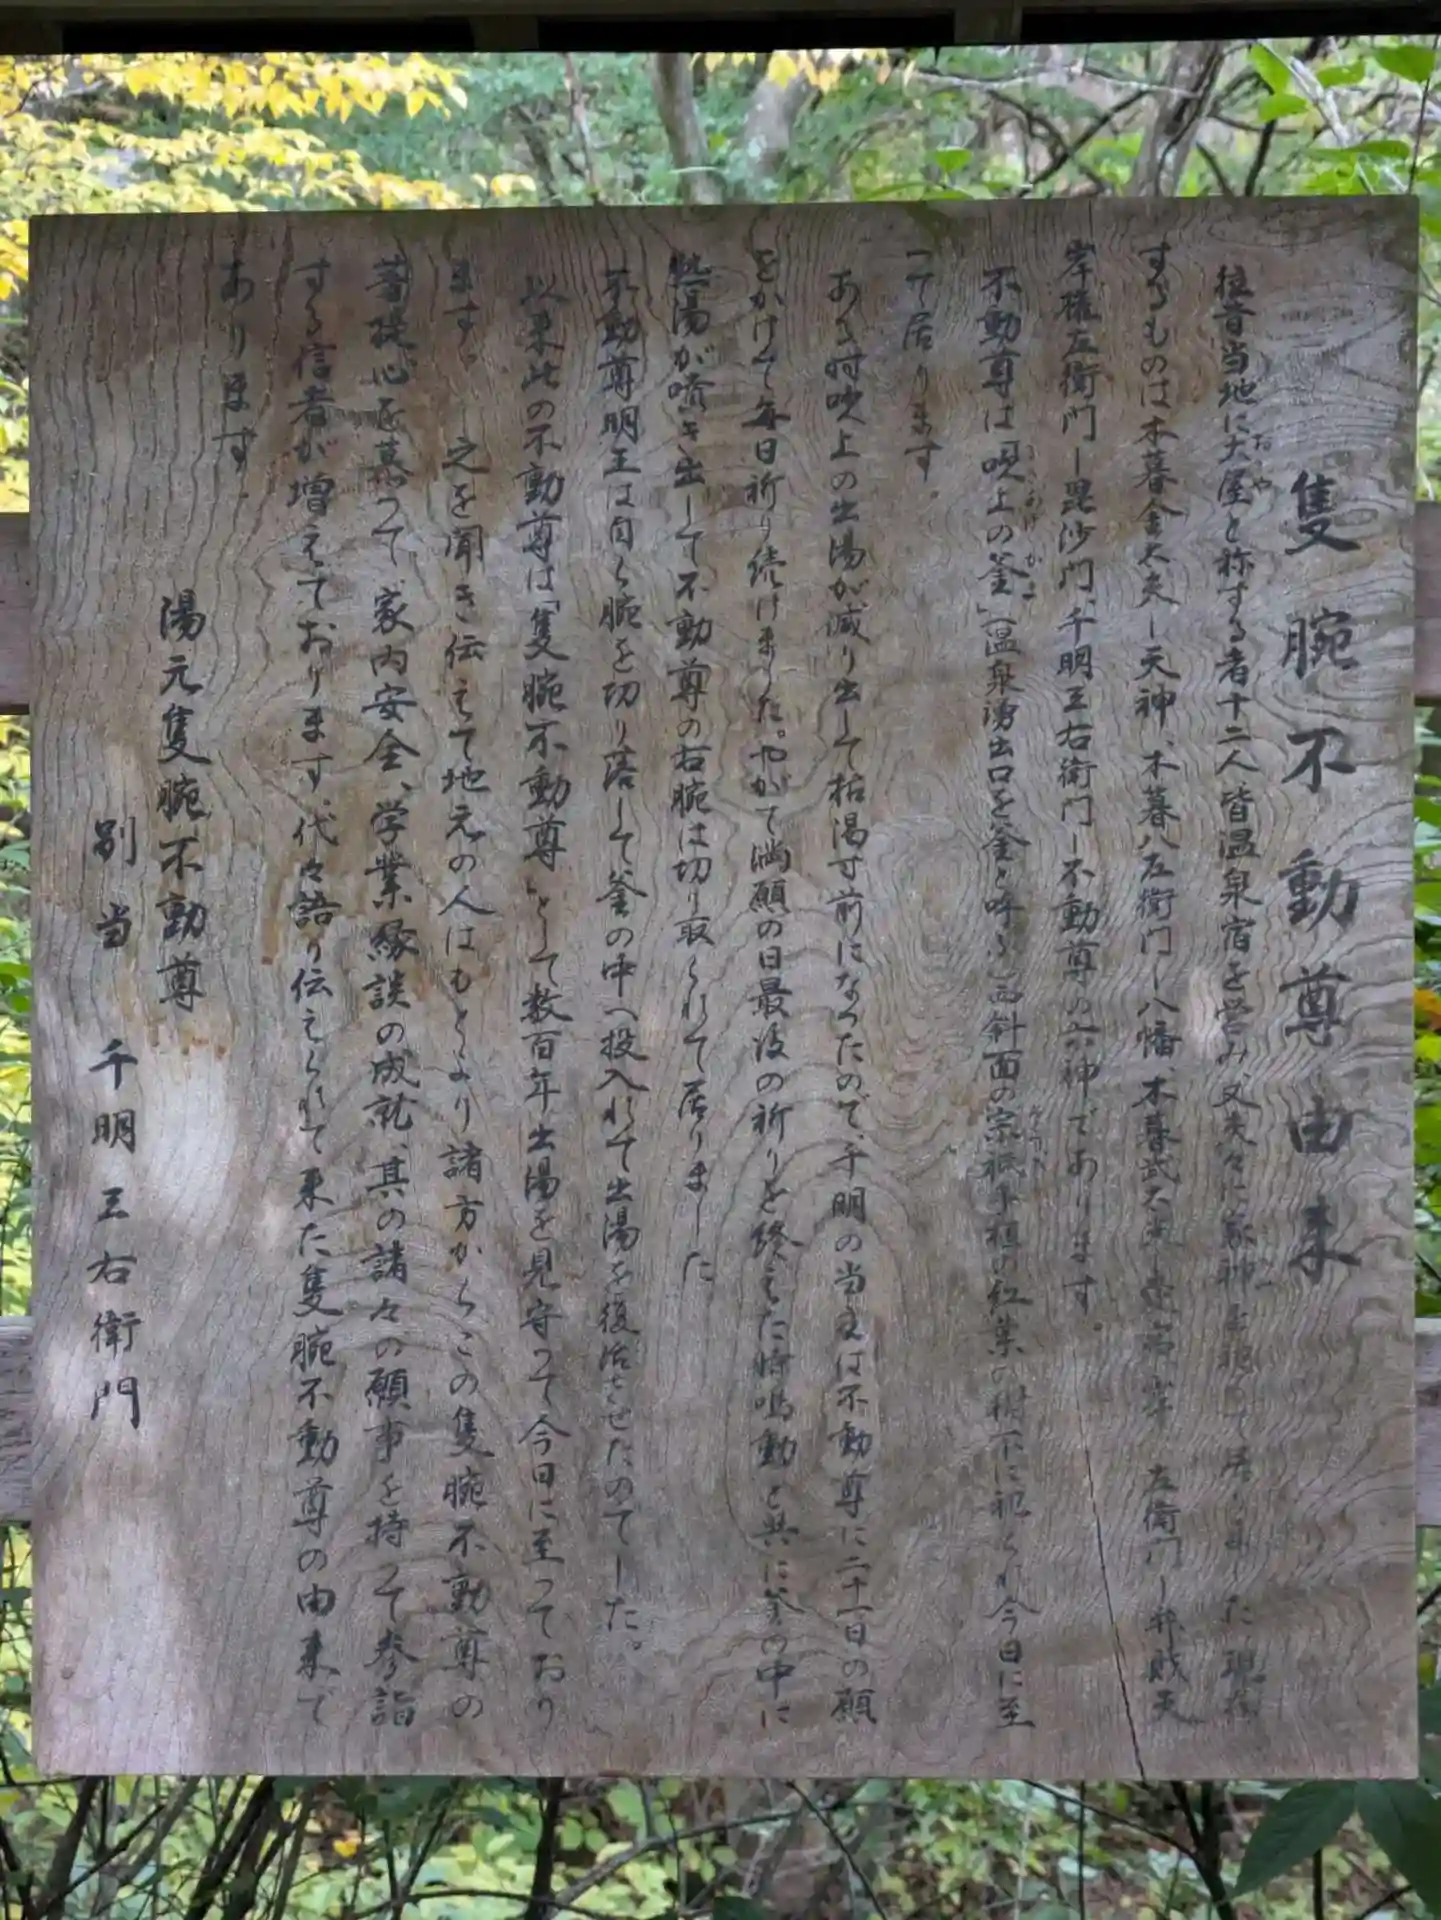 隻腕不動尊由来
往昔当地に大屋と称する者十二人皆温泉宿を営み、又夫々に家神を祀って居りました現存
おおや
するものは木暮金太夫ー天神、木暮八左衛門ー八幡、木暮武太夫ー 左衛門ー弁財天
岸権左衛門ー毘沙門、千明三右衛門ー不動尊の六神であります。
不動尊は「吹上の釜」(温泉湧出口を釜と呼ふ)西斜面の宗祇手植の紅葉の樹下に祀られ今日に至
って居ります。
ある時吹上の出湯が減り出して枯渇寸前になったので、千明の当主は不動尊に二十一日の願
をかけて毎日祈り続けました。やがて満願の日最後の祈りを終えた時鳴動と共に釜の中に
熱湯が噴き出して不動尊の右腕は切り取られて居りました
不動尊明王は自ら腕を切り落して釜の中へ投入れて出湯を復活させたのでした。
以来此の不動尊は「隻腕不動尊」として数百年出湯を見守って今日に至っており
ます。之を聞き伝えて地元の人はもとより諸方からこの隻腕不動尊の
菩提心を慕って、家内安全、学業縁談の成就、其の諸々の願事を持って参詣
する信者が増えております、代々語り伝えられて来た隻腕不動尊の由来で
あります。
湯元隻腕不動尊
別当 千明三右衛門